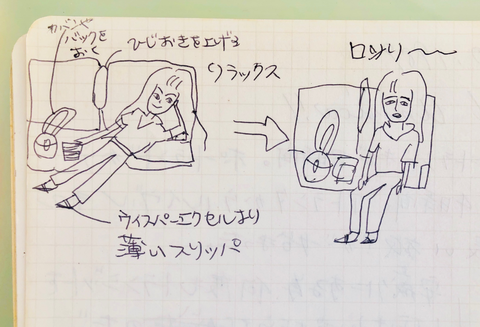 カバンや
バックを
おく
ひじおきを上げる
リラックス
ロンリ〜〜
ウィスパーエクセルより
薄いスリッパ